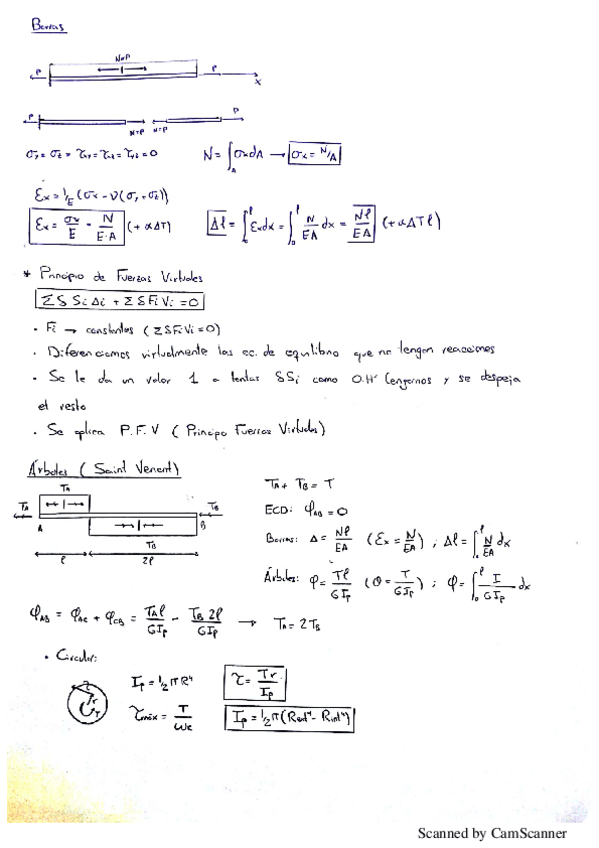 Barras
N=P
P
P
x
P
P
N=P N=P
σy = σz = τxy = τxz = τyz = 0 N = ∫A σx dA → σx = N/A
εx = 1/E (σx - ν(σy + σz))
εx = σx/E = N/E·A (+ αΔT) Δl = ∫₀ˡ εx dx = ∫₀ˡ N/EA dx = Nl/EA (+ αΔTl)
* Principio de Fuerzas Virtuales
Σ δSi Δi + Σ δFi Vi = 0
· Fi → constantes (Σ δFi Vi = 0)
· Diferenciamos virtualmente las ec. de equilibrio que no tengan reacciones
· Se le da un valor 1 a tantas δSi como G.H tengamos y se despeja
el resto
· Se aplica P.F.V (Principio Fuerzas Virtuales)
Árboles (Saint Venant)
TA
TA TB
A B
TB
l 2l
TA + TB = T
ECD: φAB = 0
Barras: Δ = Nl/EA (εx = N/EA) ; Δl = ∫₀ˡ N/EA dx
Árboles: φ = Tl/GIp (θ = T/GIp) ; φ = ∫₀ˡ T/GIp dx
φAB = φAC + φCB = TAl/GIp - TB2l/GIp → TA = 2TB
· Circular:
τ
r
T
Ip = 1/2 π R⁴ τ = Tr/Ip
τmáx = T/We Ip = 1/2 π (Rext⁴ - Rint⁴)
Scanned by CamScanner